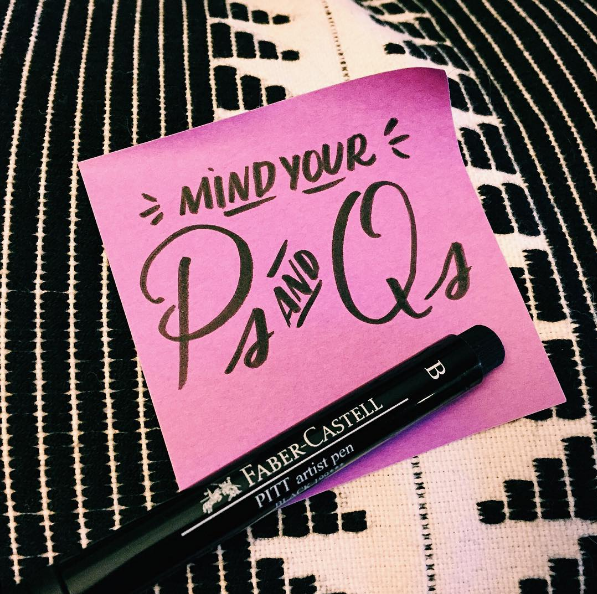 MIND YOUR
Ps AND Qs
B
FABER-CASTELL
PITT artist pen